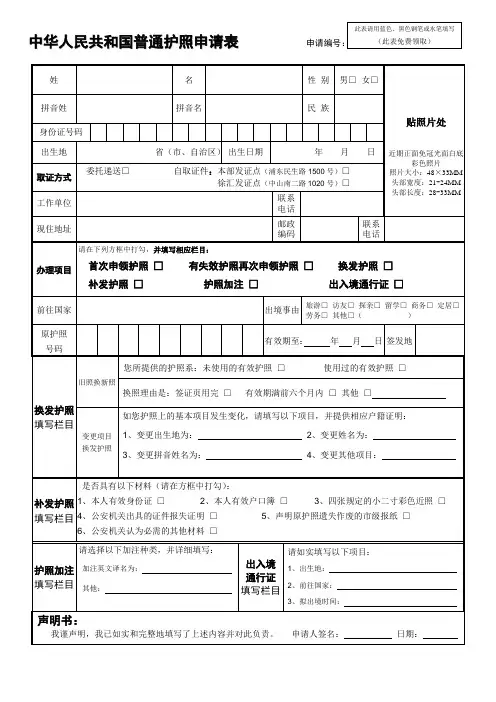 此表请用蓝色、黑色钢笔或水笔填写
（此表免费领取）
中华人民共和国普通护照申请表
申请编号：
姓 名 性 别 男□ 女□
拼音姓 拼音名 民 族
身份证号码
贴照片处
近期正面免冠光面白底
彩色照片
照片大小：48×33MM
头部宽度：21-24MM
头部长度：28-33MM
出生地 省（市、自治区） 出生日期 年 月 日
取证方式 委托递送□ 自取证件：本部发证点（浦东民生路 1500 号）□
徐汇发证点（中山南二路 1020 号）□
工作单位 联系
电话
现住地址 邮政
编码 联系
电话
办理项目
请在下列方框中打勾，并填写相应栏目：
首次申领护照 □ 有失效护照再次申领护照 □ 换发护照 □
补发护照 □ 护照加注 □ 出入境通行证 □
前往国家 出境事由 旅游□ 访友□ 探亲□ 留学□ 商务□ 定居□
劳务□ 其他□（ ）
原护照
号码
有效期至： 年 月 日 签发地
换发护照
填写栏目
旧照换新照
您所提供的护照系：未使用的有效护照 □ 使用过的有效护照 □
换照理由是：签证页用完 □ 有效期满前六个月内 □ 其他 □
变更项目
换发护照
如您护照上的基本项目发生变化，请填写以下项目，并提供相应户籍证明：
1、变更出生地为： 2、变更姓名为：
3、变更拼音姓名为： 4、变更其他项目：
补发护照
填写栏目
是否具有以下材料（请在方框中打勾）：
1、本人有效身份证 □ 2、本人有效户口簿 □ 3、四张规定的小二寸彩色近照 □
4、公安机关出具的证件报失证明 □ 5、声明原护照遗失作废的市级报纸 □
6、公安机关认为必需的其他材料 □
护照加注
填写栏目
请选择以下加注种类，并详细填写：
加注英文译名为：
其他：
出入境
通行证
填写栏目
请如实填写以下项目：
1、出生地：
2、前往国家：
3、拟出境时间：
声明书：
我谨声明，我已如实和完整地填写了上述内容并对此负责。 申请人签名： 日期：